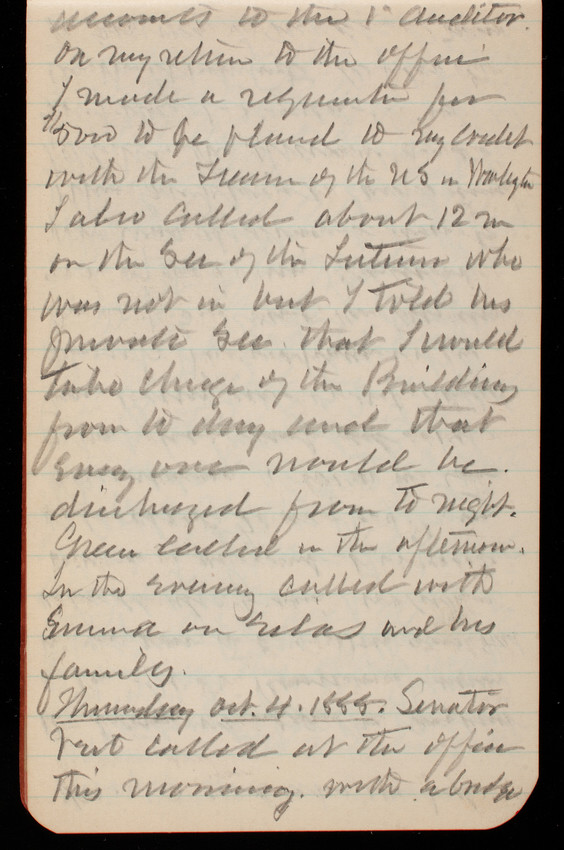 accounts to the 1st Auditor.
On my return to the office
I made a requisition for
$500 to be placed to my credit
with the Treasurer of the US in Washington
I also called about 12 m
on the Sec of the Interior who
was not in but I told his
private Sec. that I would
take charge of the Building
from to day and that
Every one would be
discharged from to night.
Green called in the afternoon.
In the Evening called with
Emma on Silas and his
family.
Thursday Oct. 4. 1888. Senator
Vest called at the office
this morning. with a